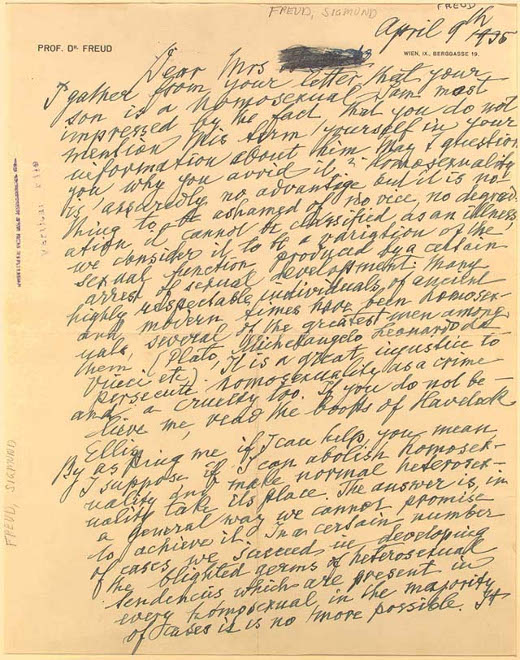 FREUD, SIGMUND
FREUD
April 9th 1935
PROF. DR. FREUD
WIEN, IX., BERGGASSE 19.
Dear Mrs
I gather from your letter that your
son is a homosexual. I am most
impressed by the fact, that you do not
mention this term yourself in your
information about him. May I question
you why you avoid it? Homosexuality
is assuredly no advantage but it is no-
thing to be ashamed of, no vice, no degrad-
ation, it cannot be classified as an illness;
we consider it to be a variation of the
sexual function produced by a certain
arrest of sexual development. Many
highly respectable individuals of ancient
and modern times have been homosex-
uals, several of the greatest men among
them. (Plato, Michelangelo, Leonardo da
Vinci etc) It is a great injustice to
persecute homosexuality as a crime
and a cruelty too. If you do not be-
lieve me, read the books of Havelock
Ellis.
By asking me if I can help, you mean
I suppose if I can abolish homosex-
uality and make normal heterosex-
uality take its place. The answer is, in
a general way we cannot promise
to achieve it. In a certain number
of cases we succeed in developing
the blighted germs of heterosexual
tendencies which are present in
every homosexual, in the majority
of cases it is no more possible. It
FREUD, SIGMUND